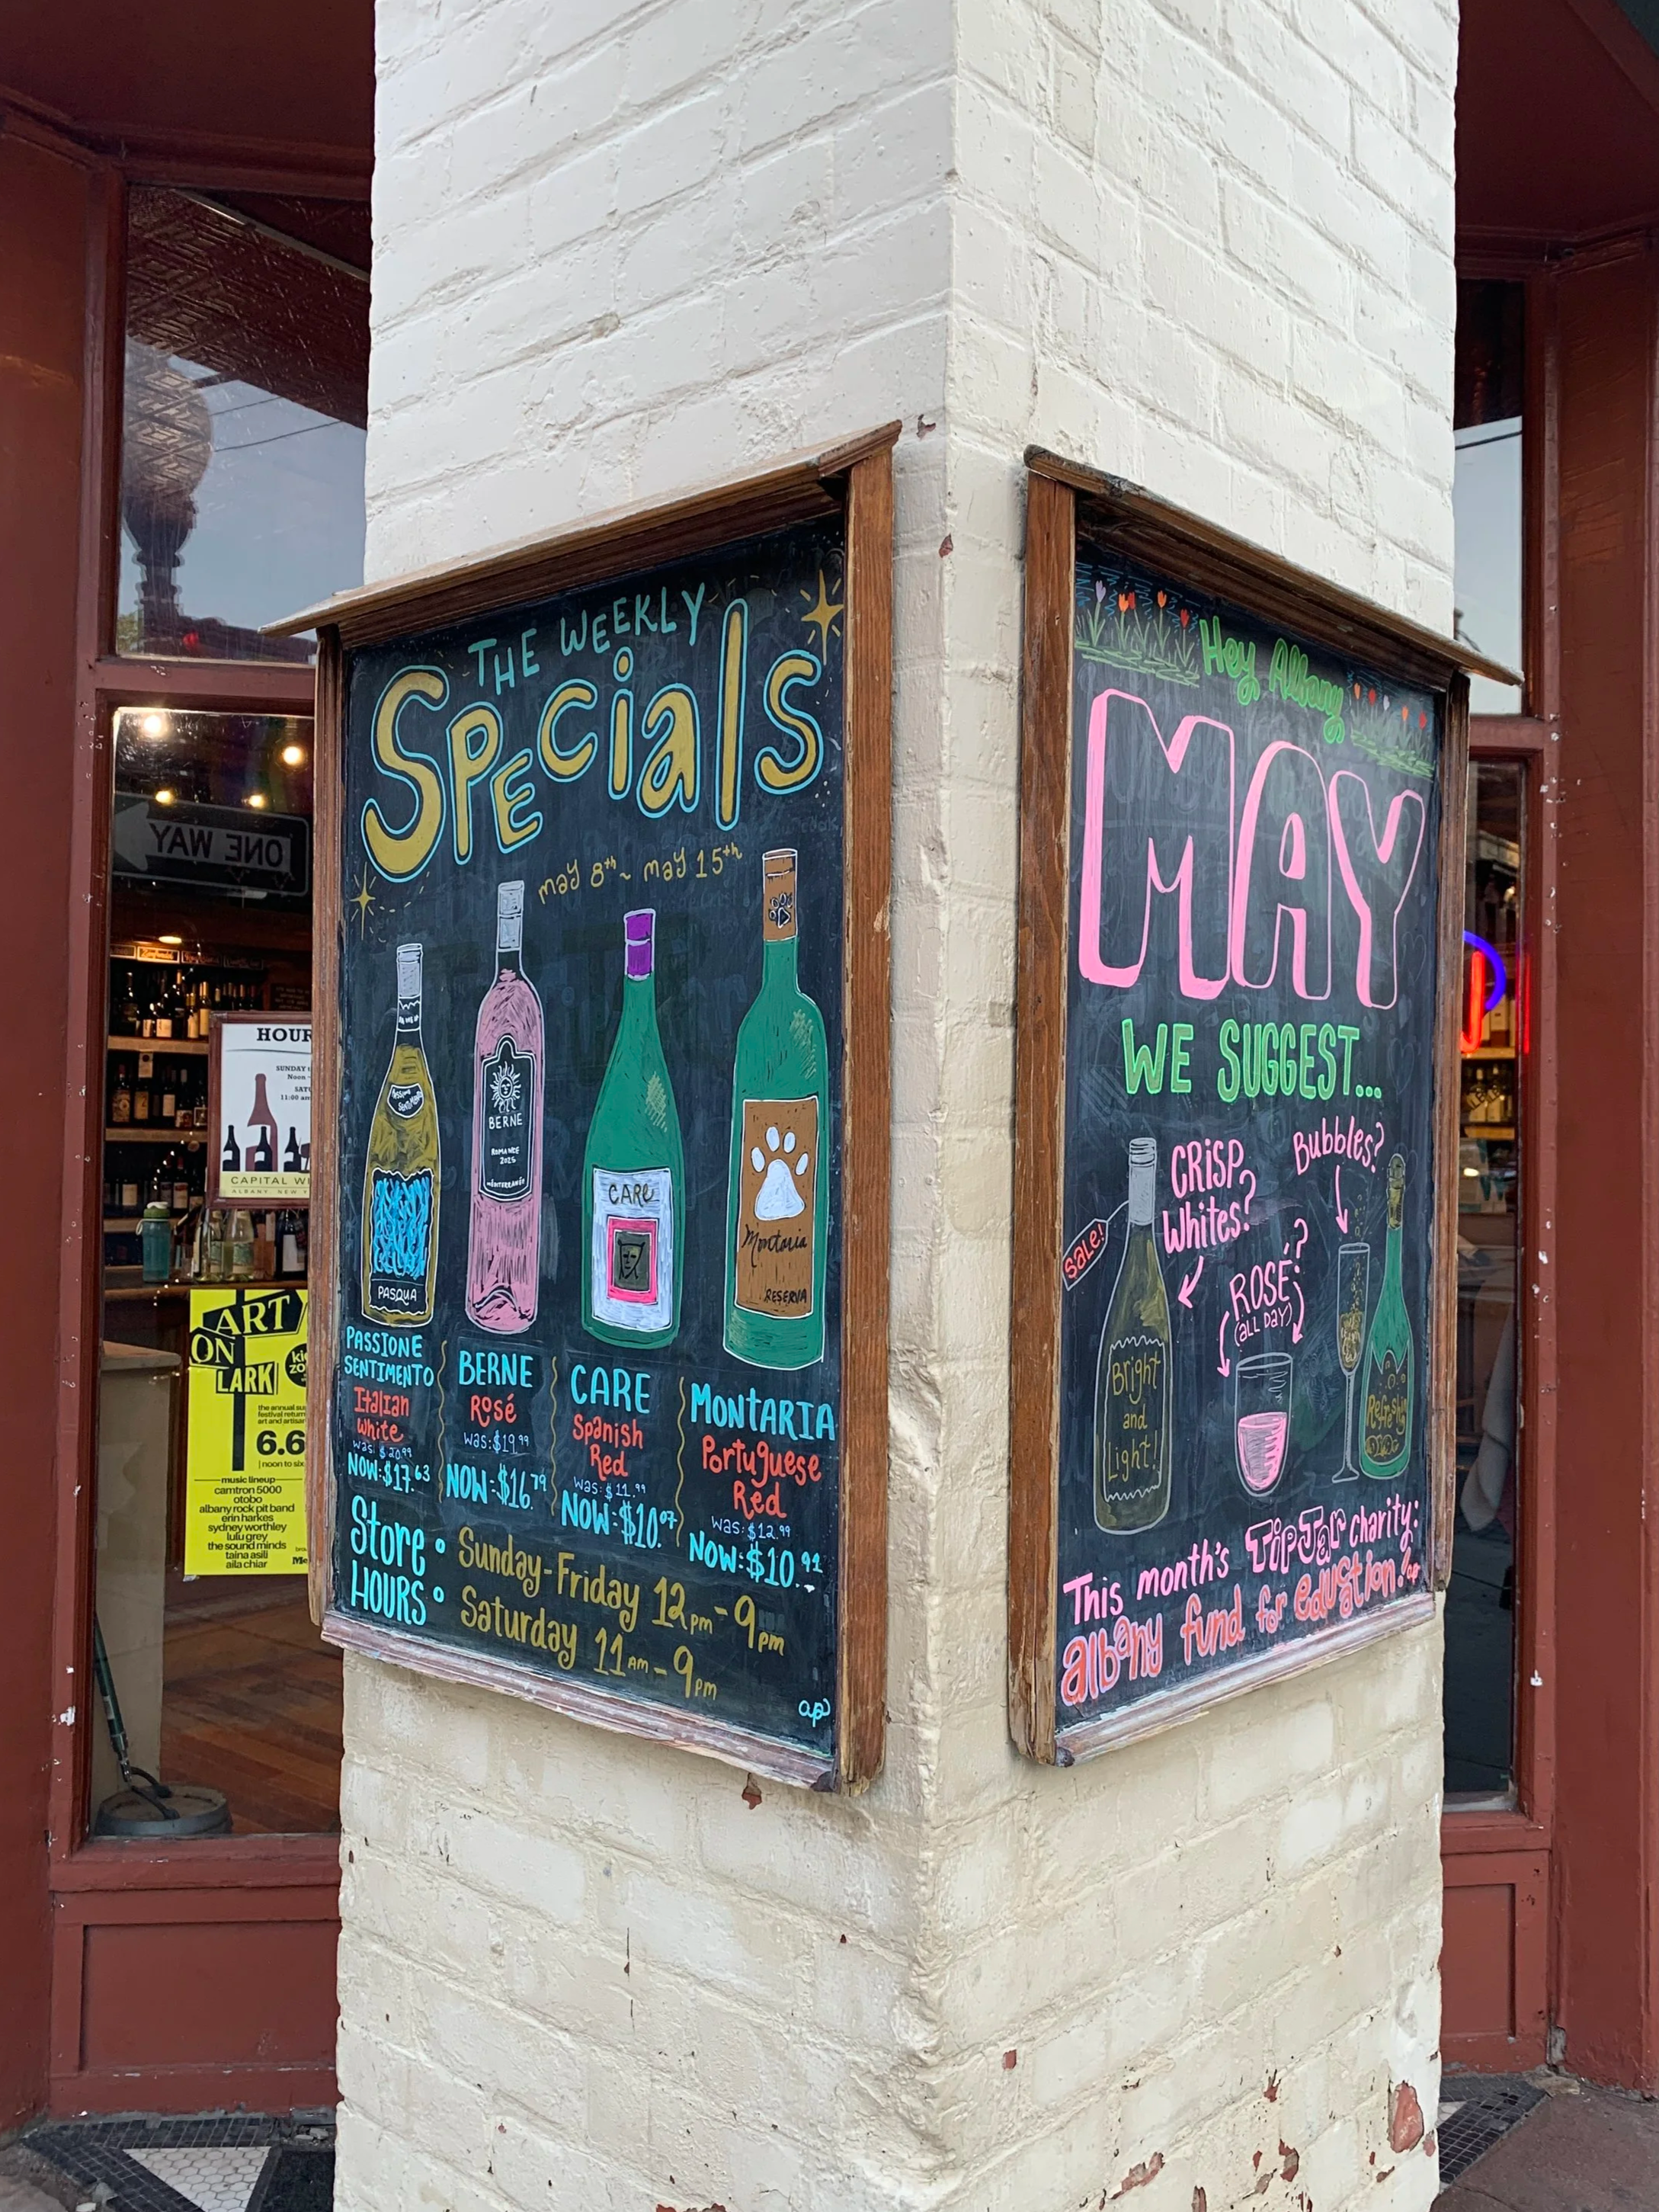 THE WEEKLY
SPECiaLS
may 8th ~ may 15th
PASQUA
BERNE
ROMANCE
2025
MÉDITERRANÉE
CARE
Montaria
RESERVA
PASSIONE
SENTIMENTO
Italian
White
was: $20.99
NOW: $17.63
BERNE
Rosé
was: $19.99
NOW: $16.79
CARE
Spanish
Red
was: $11.99
NOW: $10.07
MONTARIA
Portuguese
Red
was: $12.99
NOW: $10.91
Store
HOURS
Sunday-Friday 12pm-9pm
Saturday 11AM-9pm
ap
Hey Albany
MAY
WE SUGGEST...
CRISP
Whites?
Bubbles?
SALE!
ROSÉ?
(ALL DAY)
Bright
and
Light!
This month's TipJar charity:
albany fund for edustion!
ONE WAY
HOUR
SUNDAY
Noon
SAT
11:00 am
CAPITAL WI
ALBANY, NEW Y
ART
ON
LARK
the annual
festival return
art and artisa
6.6
noon to six
music lineup
camtron 5000
otobo
albany rock pit band
erin harkes
sydney worthley
lulu grey
the sound minds
taina asili
aila chiar